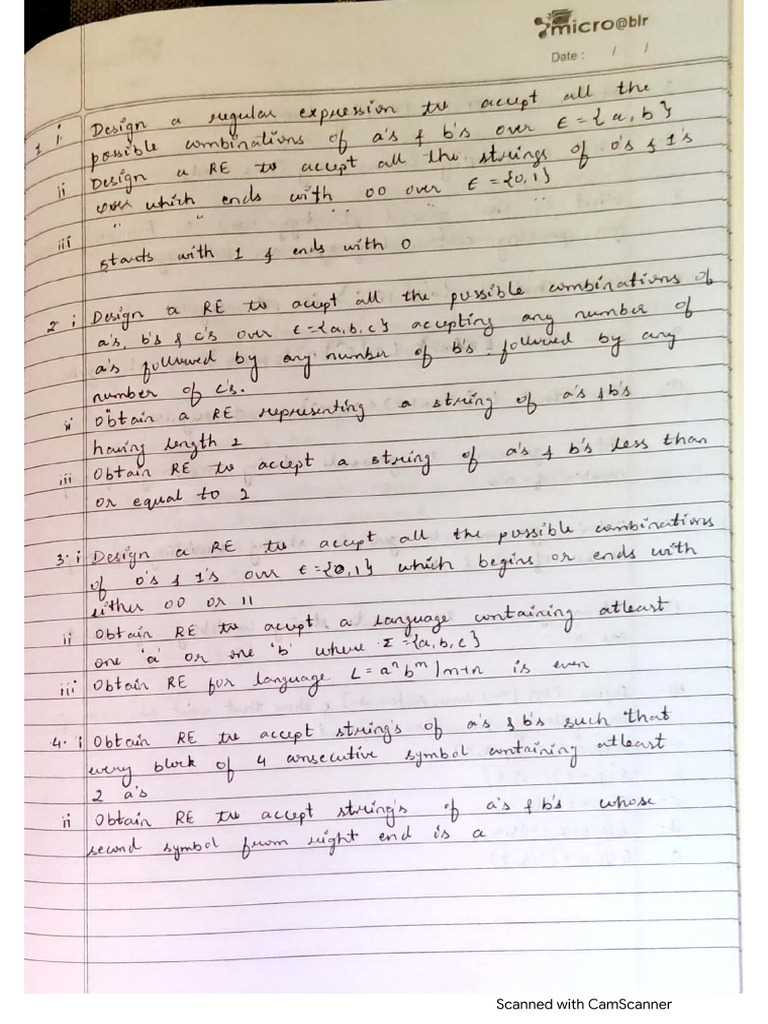 micro@blr
Date : / /
1 i. Design a regular expression to accept all the
possible combinations of a's & b's over ϵ = {a, b}
ii Design a RE to accept all the strings of 0's & 1's
which ends with 00 over ϵ = {0,1}
iii " " "
starts with 1 & ends with 0
2 i Design a RE to accept all the possible combinations of
a's, b's & c's over ϵ={a,b,c} accepting any number of
a's followed by any number of b's followed by any
number of c's.
ii Obtain a RE representing a string of a's & b's
having length 2
iii Obtain RE to accept a string of a's & b's less than
or equal to 2
3. i Design a RE to accept all the possible combinations
of 0's & 1's over ϵ={0,1} which begins or ends with
either 00 or 11
ii Obtain RE to accept a language containing atleast
one 'a' or one 'b' where Σ={a,b,c}
iii Obtain RE for language L = aⁿ bᵐ | m+n is even
4. i Obtain RE to accept string's of a's & b's such that
every block of 4 consecutive symbol containing atleast
2 a's
ii Obtain RE to accept string's of a's & b's whose
second symbol from right end is a
Scanned with CamScanner